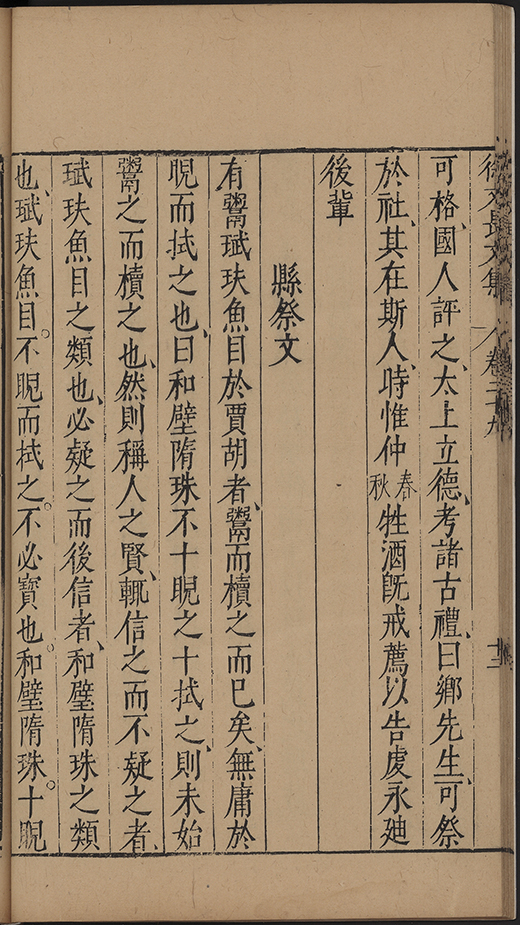 徐文長文集 卷二十九 十三
可格、國人評之、太上立德、考諸古禮、曰鄉先生、可祭
於社、其在斯人、時惟仲春秋牲酒旣戒薦以告虔永廸
後輩
縣祭文
有鬻珷玞魚目於賈胡者、鬻而櫝之而已矣、無庸於
睨而拭之也、曰和璧隋珠不十睨之十拭之、則未始
鬻之而櫝之也、然則稱人之賢、輒信之而不疑之者、
珷玞魚目之類也、必疑之而後信者、和璧隋珠之類
也、珷玞魚目。不睨而拭之。不必寶也。和璧隋珠。十睨